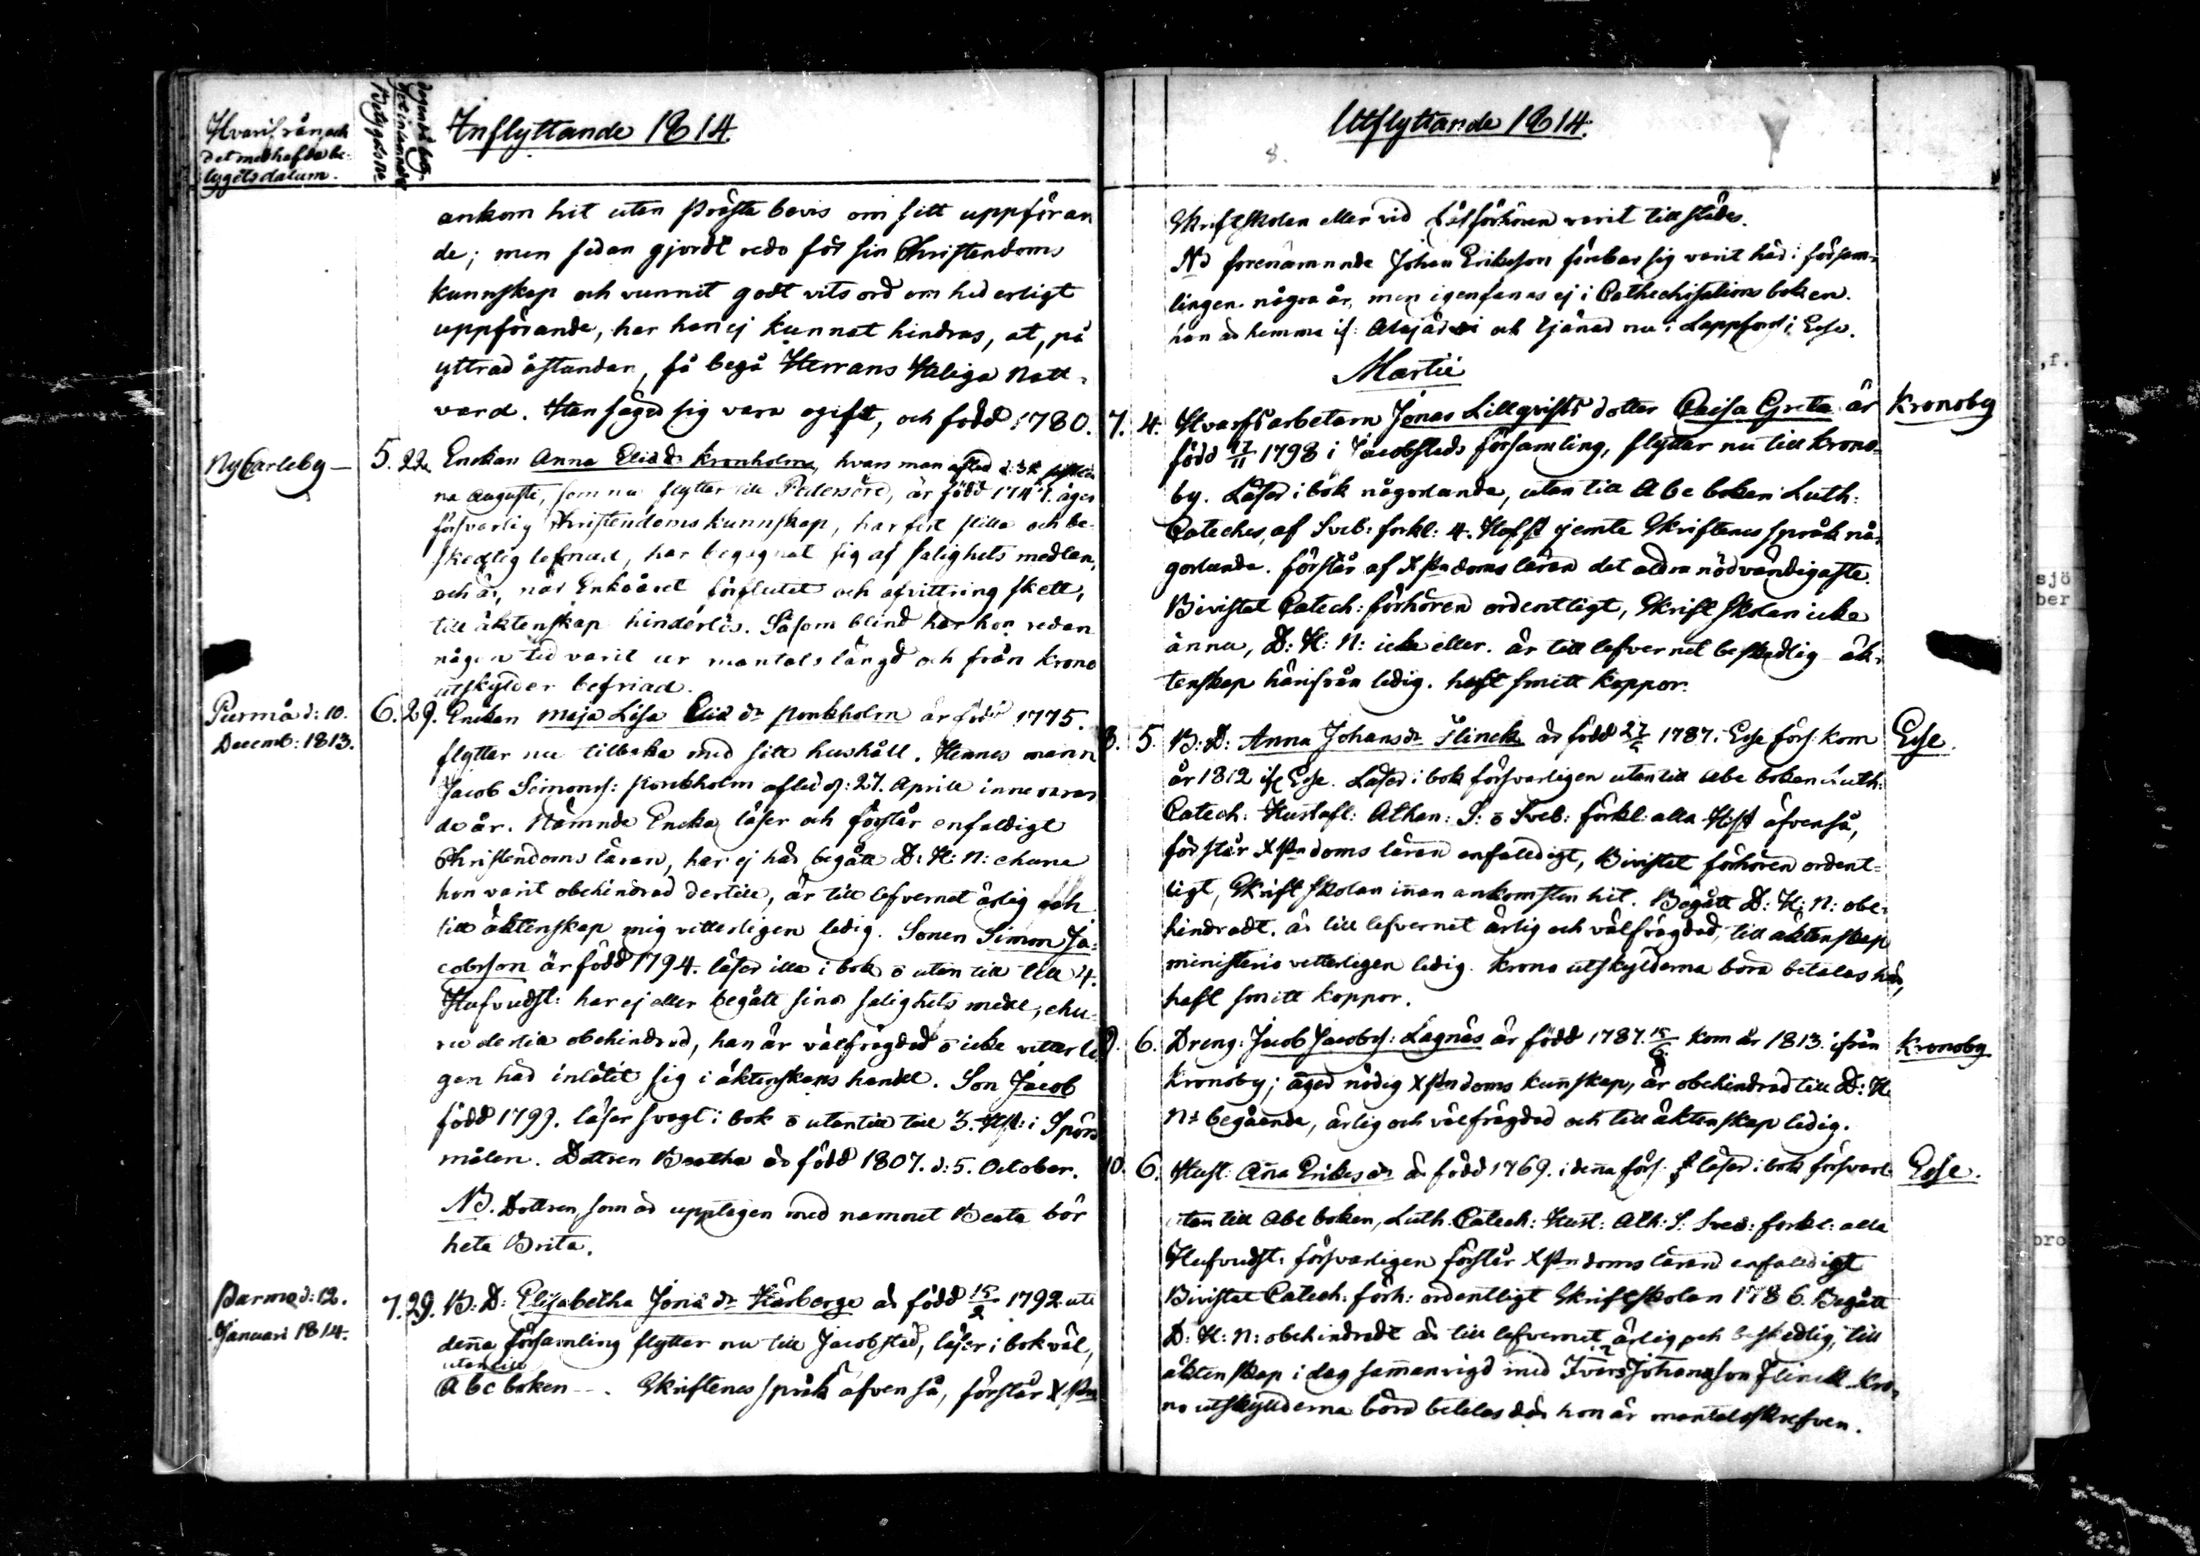 Hvarifrån och
det medhafda be-
tygets datum.
Betygets No
Inflyttande 1814.
ankom hit utan Präste bevis om sitt uppföran
de; men sedan gjordt redo för sin Christendoms
kunnskap och vunnit godt vitsord om hederligt
uppförande, har han ej kunnat hindras, at, på
yttrad åstundan, få begå Herrans Heliga Natt-
vard. Han säger sig vara ogift, och född 1780.
NyCarleby — 5. 22. Enckan Anna Eliæ dr Kronholm, hvars man afled d: 31
Augusti, som nu flyttar till Pedersöre, är född 1747. äger
försvarlig Christendoms kunnskap, har fört stilla och be-
skedlig lefnad, har begagnat sig af salighets medlen,
och är, när Enkåret förflutet och afvittring skett,
till äktenskap hinderlös. Såsom blind har hon redan
någon tid varit ur mantals längd och från krono
utskylder befriad.
Purmo d: 10.
Decemb: 1813.
6. 29. Enckan Maja Lisa Eliæ dr Stonkholm är född 1775.
flyttar nu tilbaka med sitt hushåll. Hennes mann
Jacob Simons: Stonkholm afled d: 27. Aprill innevaran
de år. Nämnde Encka läser och förstår enfaldigt
Christendoms läran, har ej här begått D: H: N: ehuru
hon varit obehindrad dertill, är till lefvernet ärlig och
till äktenskap mig vitterligen ledig. Sonen Simon Ja-
cobsson är född 1794. läser illa i bok o utan till till 4.
Hufvudst: har ej eller begått sina salighets medel, ehu-
ru dertill obehindrad, han är välfrägdad o icke vitterli
gen här inlåtit sig i äktenskaps handel. Son Jacob
född 1799. läser svagt i bok o utantill till 3. Hst: i Spörs
målen. Dottren Beatha är född 1807. d: 5. October.
NB. Dottren, som är upptagen med namnet Beata bör
heta Brita.
Purmo d: 12.
Januari 1814.
7. 29. B: D: Elisabetha Jonæ dr Hårberge är född 15/2 1792 uti
denna församling flyttar nu till Jacobstad, läser i bok väl,
utantill
Abc boken — . Skriftenes språk äfven så, förstår Xstn
Utflyttande 1814.
8.
Skriftskolan eller vid Läsförhören varit tillstädes.
Nd förenämnde Johan Eriksson förebar sig varit här i försam-
lingen några år, men igenfanns ej i Cathechisations boken.
han är hemma if: Alajärvi och tjänad nu i Lappfors i Esse.
Martii
7. 4. Hvarfsarbetarn Jonas Lillqvists dotter Caisa Greta är Kronoby
född 17/11 1798 i Jacobstads församling, flyttar nu till Krono-
by. Läser i bok någorlunda, utan till Abc boken Luth:
Cateches, af Sveb: förkl: 4. Hufst jemte Skriftenes språk nå-
gorlunda. förstår af Xstndoms läran det aldra nödvändigaste.
Bivistat Catech: förhören ordentligt, Skrift skolan icke
ännu, D: H: N: icke eller. är till lefvernet beskedlig äk-
tenskap härifrån ledig. haft smitt koppor.
8. 5. B: D: Anna Johans dr Flinck är född 27/5 1787 i Esse förs: kom Esse.
år 1812 if Esse. Läser i bok försvarligen utan till Abc boken Luth:
Catech: Hustafl: Athan: S: o Sveb: förkl: alla Hst äfvenså,
förstår Xstndoms läran enfaldigt, Bivistat förhören ordent-
ligt, Skrift skolan innan ankomsten hit. Begått D: H: N: obe-
hindradt. är till lefvernet ärlig och välfrägdad, till äktenskap
ministerio vetterligen ledig. Krono utskylderna böra betalas här,
haft smitt koppor.
9. 6. Dreng: Jacob Jacobss: Lagnäs är född 1787. 15/6 kom år 1813. ifrån Kronoby
Kronoby; äger nödig Xstndoms kunskap, är obehindrad till D: H:
N: begående, ärlig och välfrägdad och till äktenskap ledig.
10. 6. Hust: Anna Eriks dr är född 1769. i denna förs: läser i bok försvarl: Esse.
utan till Abc boken, Luth. Catech: Hust: Ath: S: Sveb: förkl: alla
Hufvudst: försvarligen förstår Xstndoms läran enfaldigt
Bivistat Catech: förh: ordentligt Skriftskolan 1786. Begått
D: H: N: obehindradt är till lefvernet ärlig och beskedlig, till
äktenskap i dag sammanvigd med Ivars Johansson Flinck. Kro-
no utskylderna böra betalas där hon är mantalsskrefven.